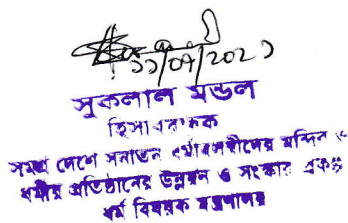 ১১/০৭/২০২১
সুকলাল মন্ডল
হিসাবরক্ষক
সমগ্র দেশে সনাতন ধর্মাবলম্বীদের মন্দির ও
ধর্মীয় প্রতিষ্ঠানের উন্নয়ন ও সংস্কার প্রকল্প
ধর্ম বিষয়ক মন্ত্রণালয়